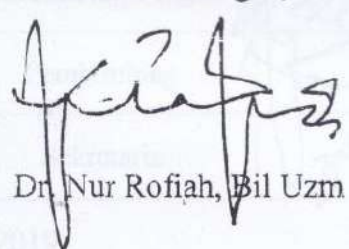 Dr. Nur Rofiah, Bil Uzm